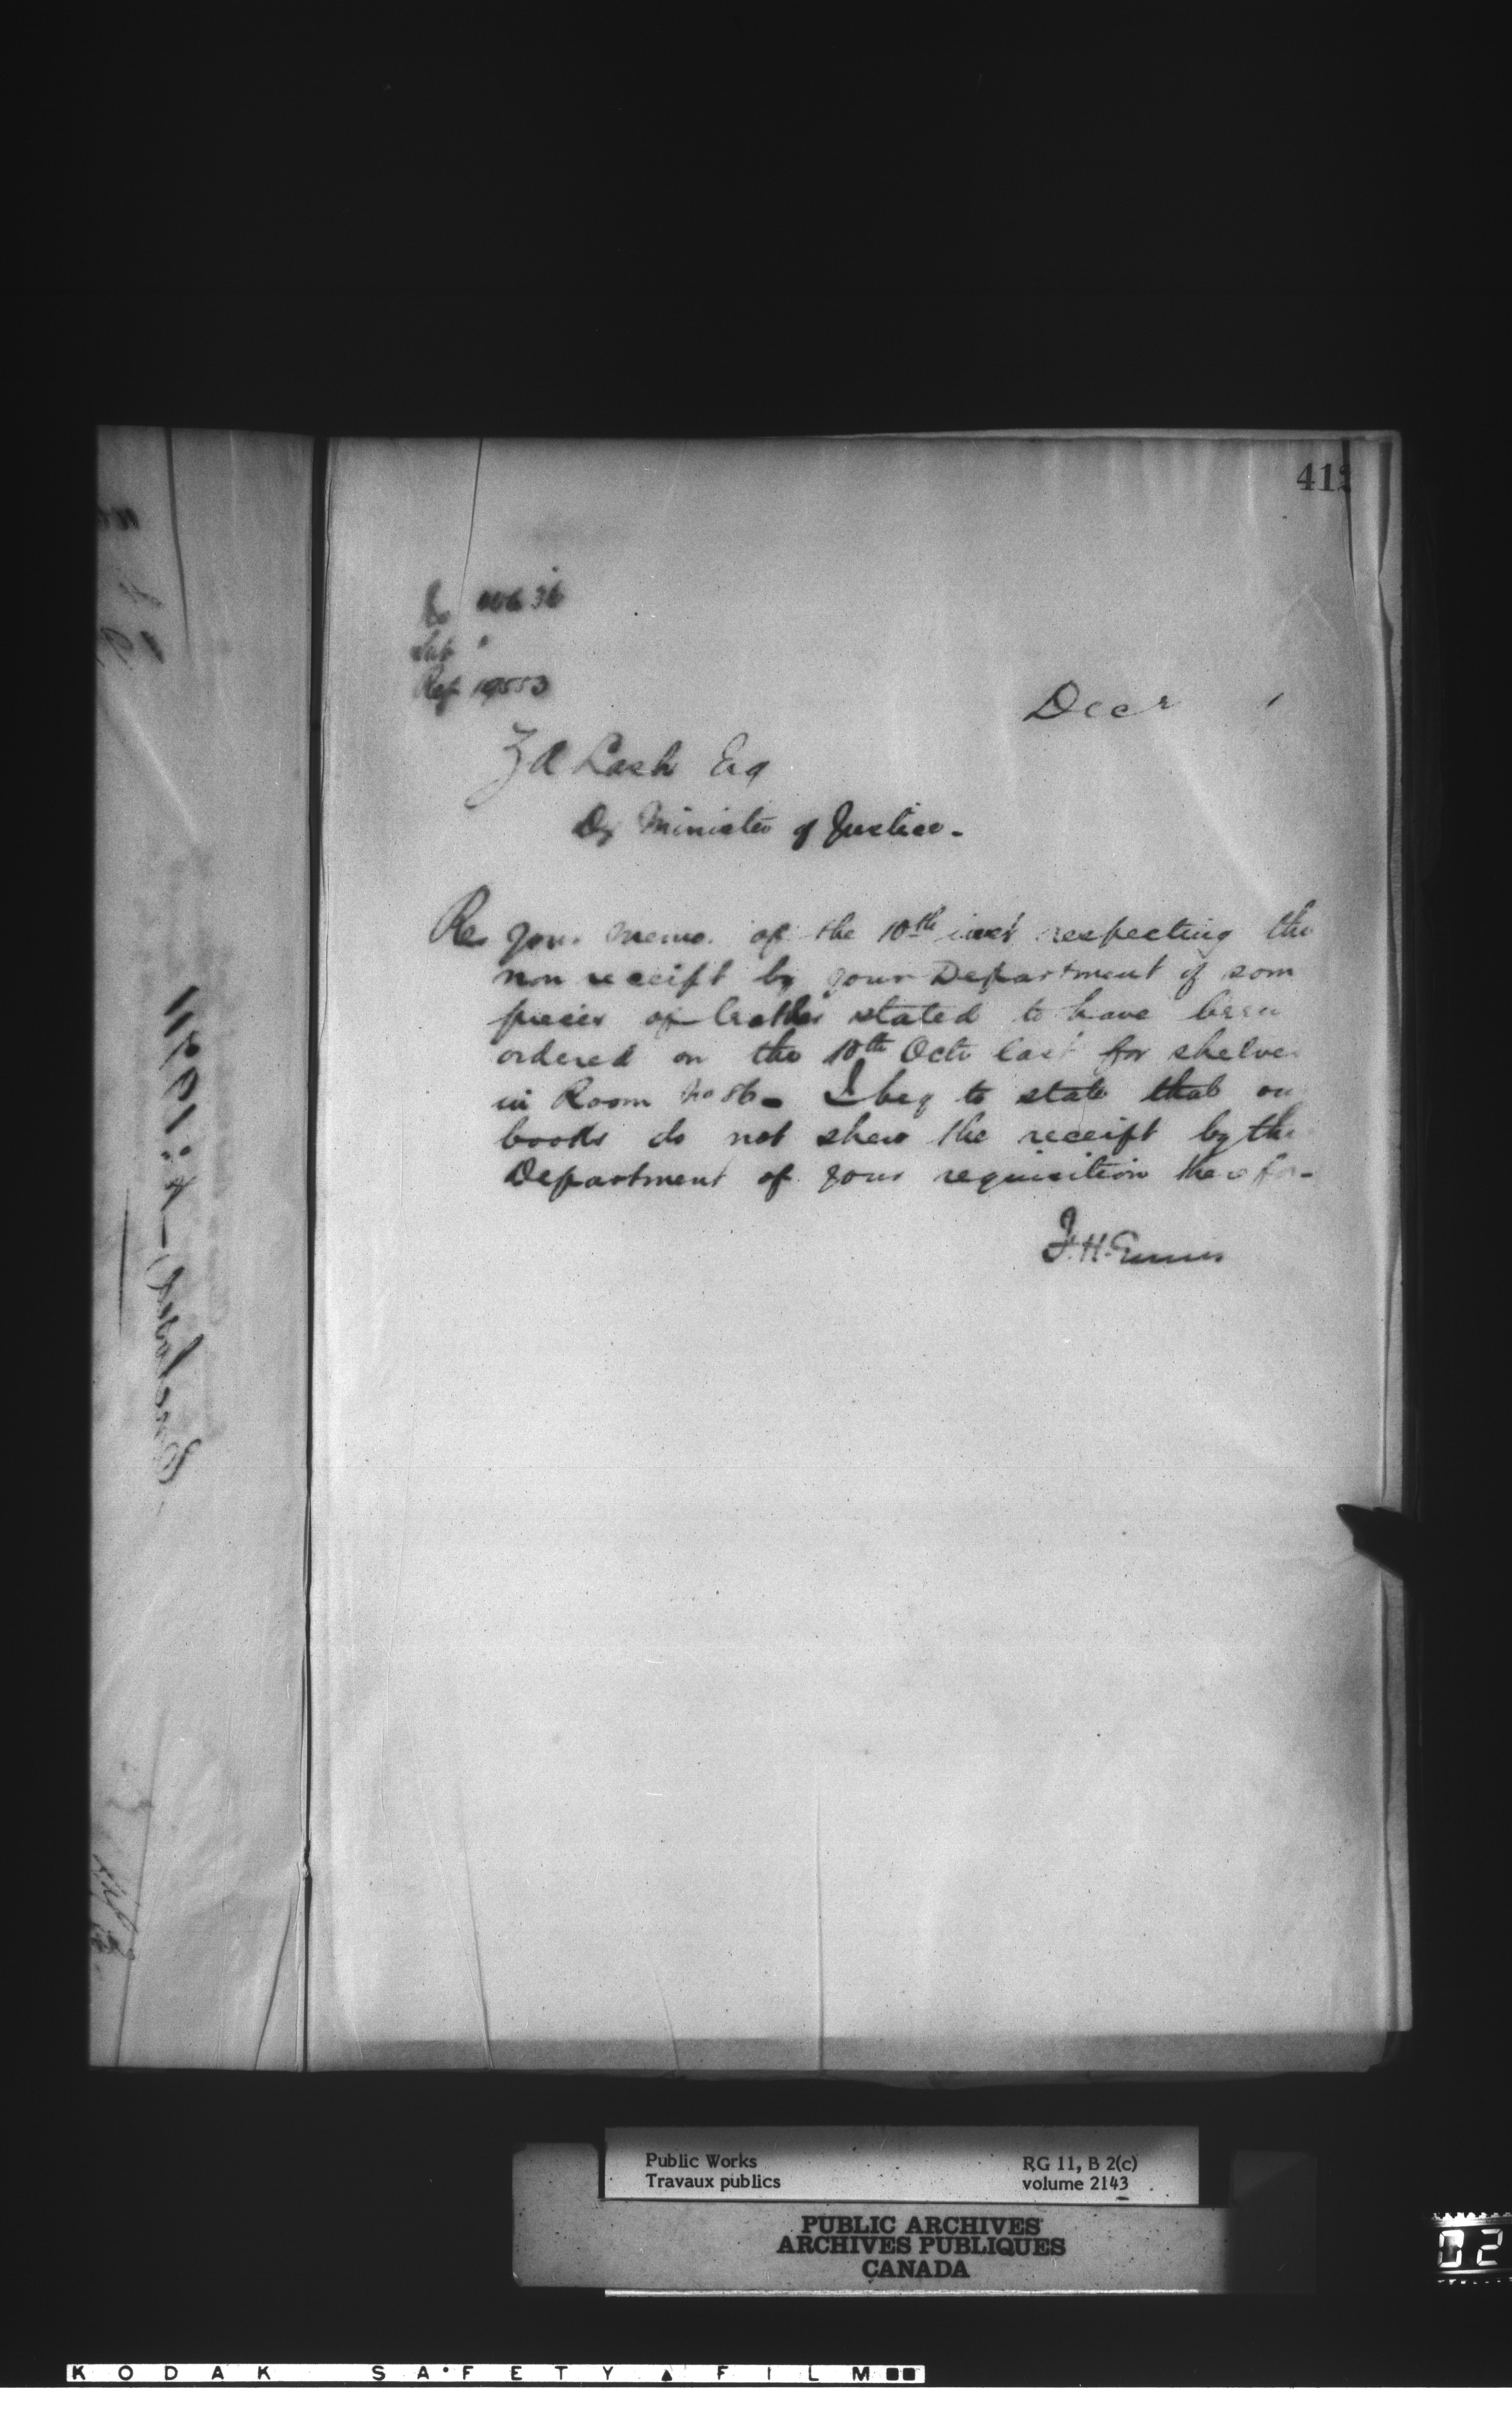 41
Sub "
Ref 19553
Decr
Z A Lash Esq
Dy Minister of Justice -
Re your memo. of the 10th inst respecting the
non receipt by your Department of som
pieces of leather stated to have been
ordered on the 10th Octr last for shelve
in Room No 86 - I beg to state that ou
books do not shew the receipt by the
Department of your requisition therefor -
F. H. Ennis
Public Works
Travaux publics
RG 11, B 2(c)
volume 2143
PUBLIC ARCHIVES
ARCHIVES PUBLIQUES
CANADA
02
KODAK SAFETY FILM